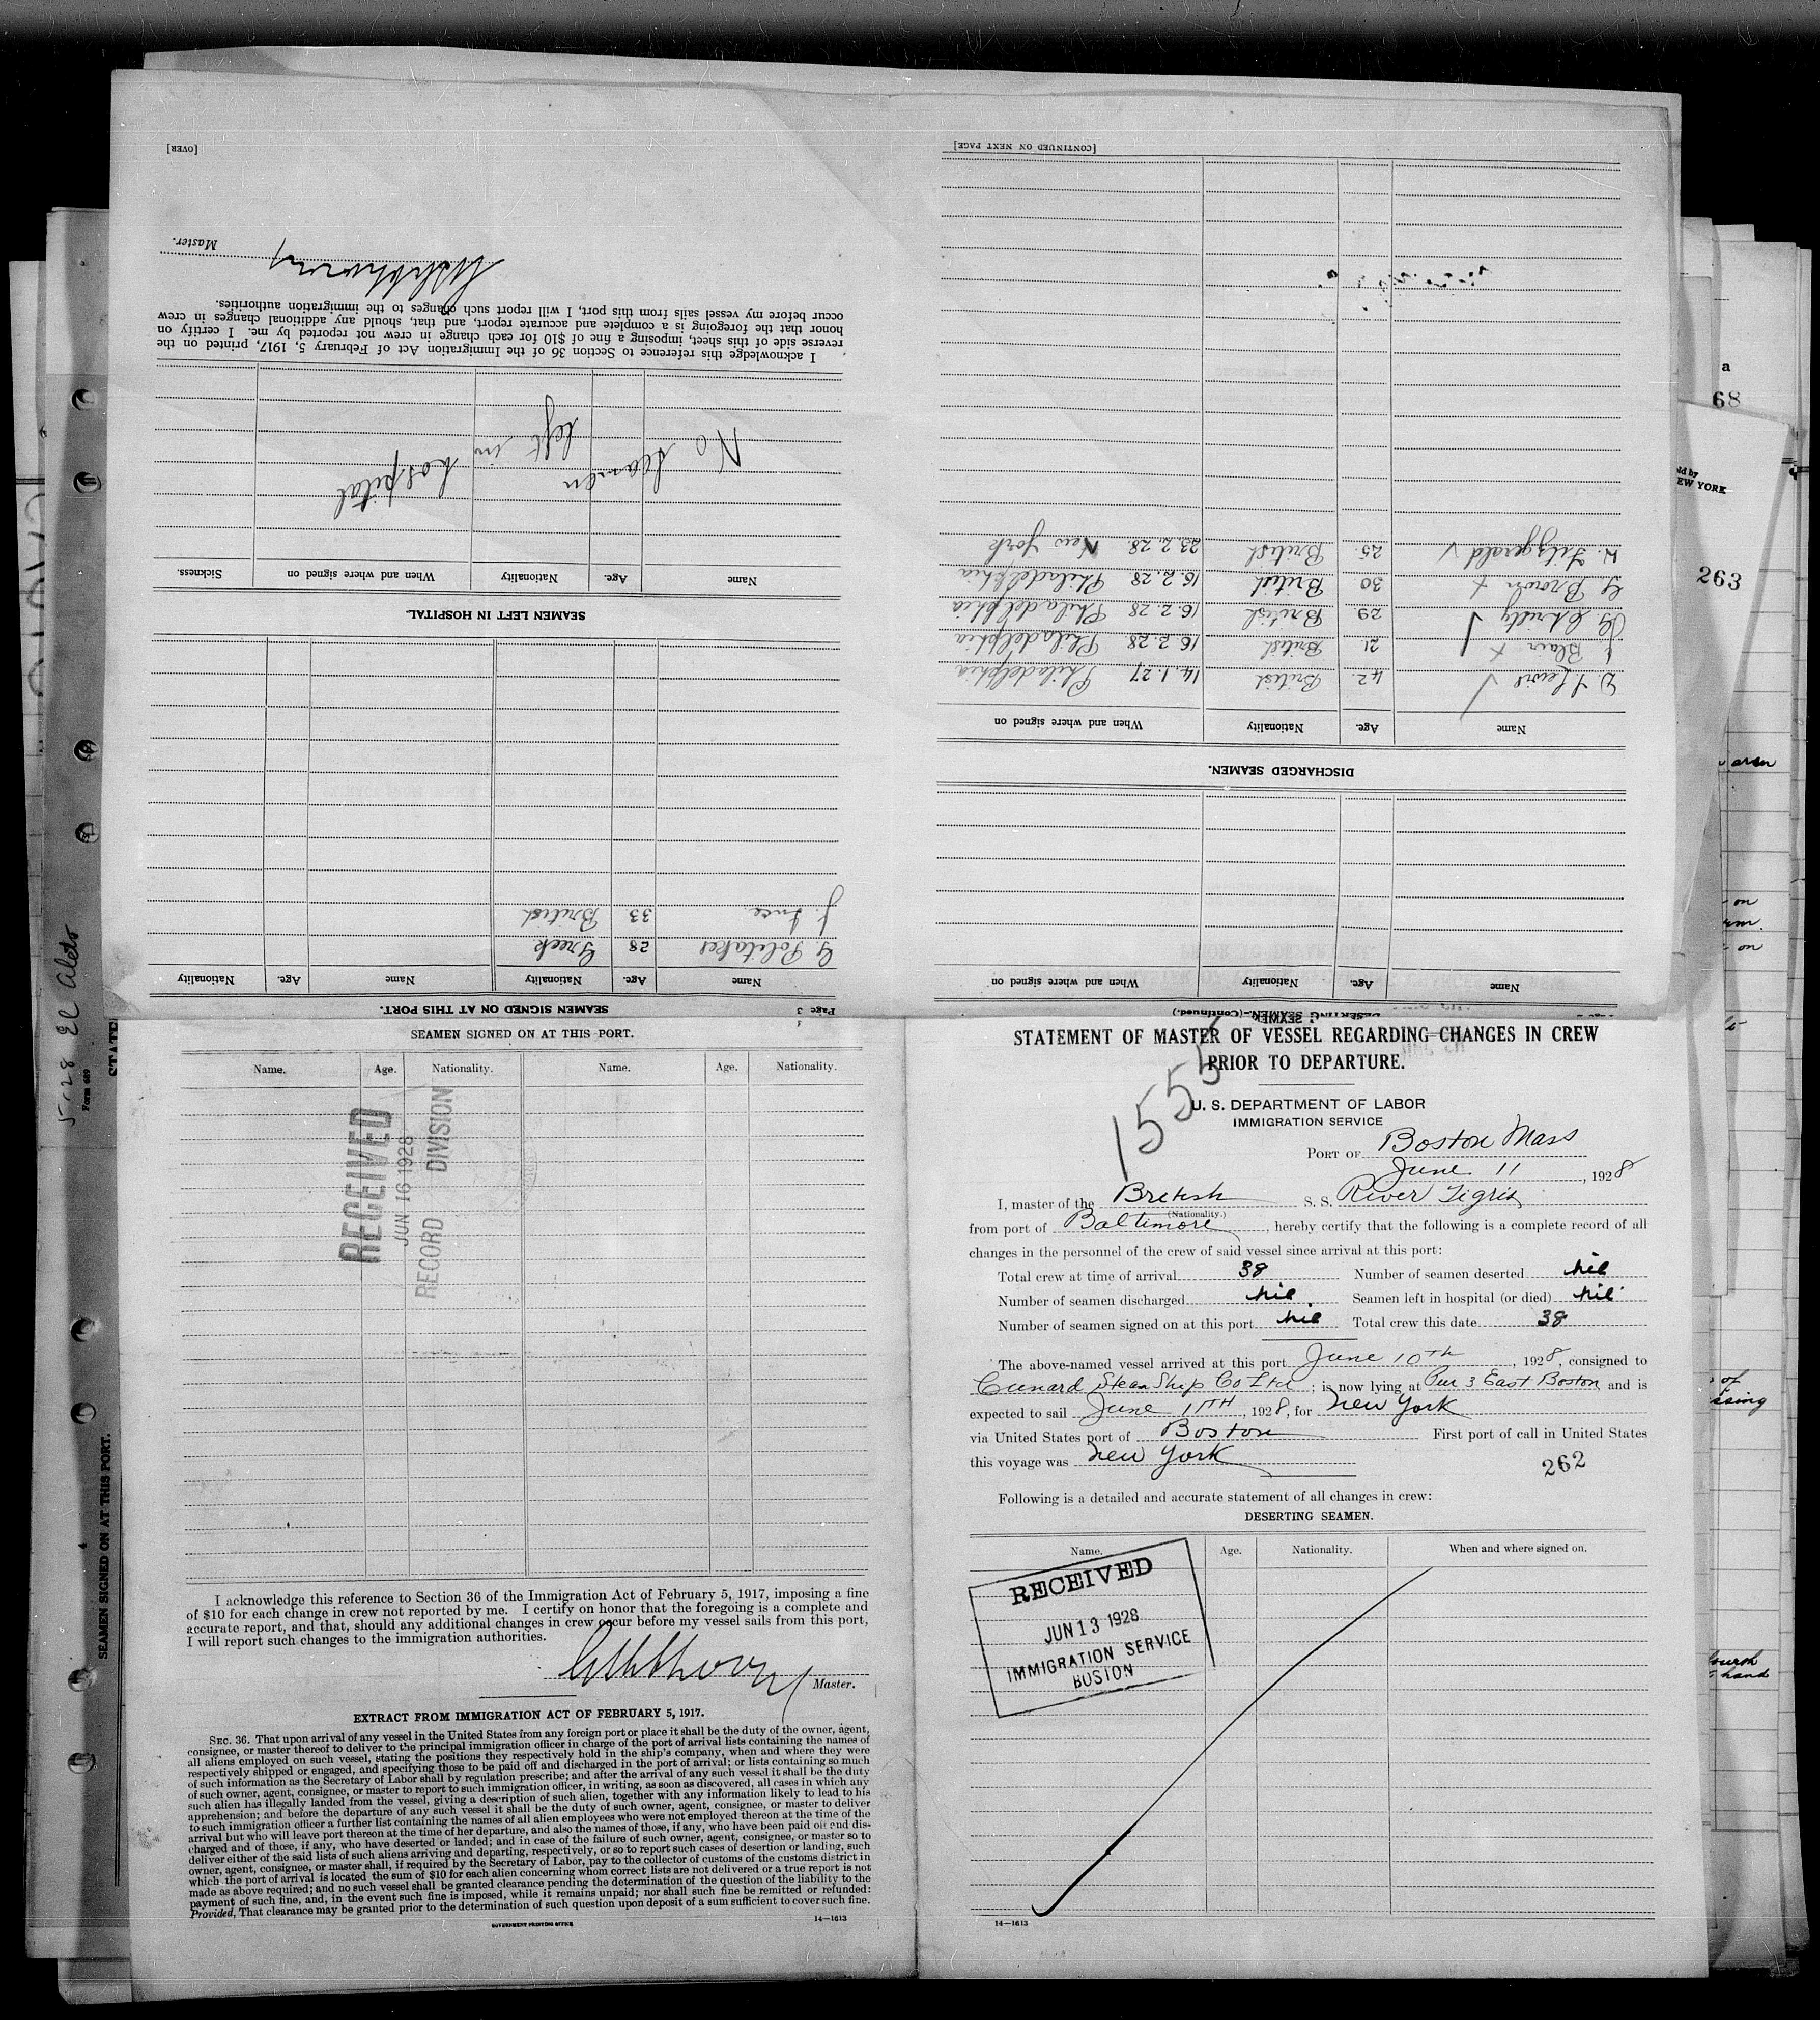 [OVER]
Master.
I acknowledge this reference to Section 36 of the Immigration Act of February 5, 1917, printed on the
reverse side of this sheet, imposing a fine of $10 for each change in crew not reported by me. I certify on
honor that the foregoing is a complete and accurate report, and that, should any additional changes in crew
occur before my vessel sails from this port, I will report such changes to the immigration authorities.
No Seamen left in hospital
Name Age. Nationality When and where signed on Sickness.
SEAMEN LEFT IN HOSPITAL.
J. Ince 33 British
G Politakes 28 Greek
Name Age. Nationality Name Age. Nationality
Page 3 SEAMEN SIGNED ON AT THIS PORT.
[CONTINUED ON NEXT PAGE]
W. Fitzgerald 25. British 23.2.28 New York
G Brown 30 British 16.2.28 Philadelphia
29 British 16.2.28 Philadelphia
J Blair 21 British 16.2.28 Philadelphia
D. J. Lewis 42. British 14.1.27 Philadelphia
Name Age. Nationality When and where signed on
DISCHARGED SEAMEN.
Name Age. Nationality When and where signed on
DESERTING SEAMEN—(Continued.)
a
68
EW YORK
263
5-128 El Aldo
Form 689
STATE
SEAMEN SIGNED ON AT THIS PORT.
4
SEAMEN SIGNED ON AT THIS PORT.
Name. Age. Nationality. Name. Age. Nationality.
RECEIVED
JUN 16 1928
RECORD DIVISION
I acknowledge this reference to Section 36 of the Immigration Act of February 5, 1917, imposing a fine
of $10 for each change in crew not reported by me. I certify on honor that the foregoing is a complete and
accurate report, and that, should any additional changes in crew occur before my vessel sails from this port,
I will report such changes to the immigration authorities.
Master.
EXTRACT FROM IMMIGRATION ACT OF FEBRUARY 5, 1917.
SEC. 36. That upon arrival of any vessel in the United States from any foreign port or place it shall be the duty of the owner, agent,
consignee, or master thereof to deliver to the principal immigration officer in charge of the port of arrival lists containing the names of
all aliens employed on such vessel, stating the positions they respectively hold in the ship's company, when and where they were
respectively shipped or engaged, and specifying those to be paid off and discharged in the port of arrival; or lists containing so much
of such information as the Secretary of Labor shall by regulation prescribe; and after the arrival of any such vessel it shall be the duty
of such owner, agent, consignee, or master to report to such immigration officer, in writing, as soon as discovered, all cases in which any
such alien has illegally landed from the vessel, giving a description of such alien, together with any information likely to lead to his
apprehension; and before the departure of any such vessel it shall be the duty of such owner, agent, consignee, or master to deliver
to such immigration officer a further list containing the names of all alien employees who were not employed thereon at the time of the
arrival but who will leave port thereon at the time of her departure, and also the names of those, if any, who have been paid off and dis-
charged and of those, if any, who have deserted or landed; and in case of the failure of such owner, agent, consignee, or master so to
deliver either of the said lists of such aliens arriving and departing, respectively, or so to report such cases of desertion or landing, such
owner, agent, consignee, or master shall, if required by the Secretary of Labor, pay to the collector of customs of the customs district in
which the port of arrival is located the sum of $10 for each alien concerning whom correct lists are not delivered or a true report is not
made as above required; and no such vessel shall be granted clearance pending the determination of the question of the liability to the
payment of such fine, and, in the event such fine is imposed, while it remains unpaid; nor shall such fine be remitted or refunded:
Provided, That clearance may be granted prior to the determination of such question upon deposit of a sum sufficient to cover such fine.
GOVERNMENT PRINTING OFFICE 14—1613
STATEMENT OF MASTER OF VESSEL REGARDING CHANGES IN CREW
PRIOR TO DEPARTURE.
1555
U. S. DEPARTMENT OF LABOR
IMMIGRATION SERVICE
PORT OF Boston Mass
June 11, 1928
I, master of the British S. S. River Tigris
(Nationality.)
from port of Baltimore, hereby certify that the following is a complete record of all
changes in the personnel of the crew of said vessel since arrival at this port:
Total crew at time of arrival 38 Number of seamen deserted nil
Number of seamen discharged nil Seamen left in hospital (or died) nil
Number of seamen signed on at this port nil Total crew this date 38
The above-named vessel arrived at this port June 10TH, 1928, consigned to
Cunard Steam Ship Co Ltd; is now lying at Pier 3 East Boston, and is
expected to sail June 11TH, 1928, for New York
via United States port of Boston First port of call in United States
this voyage was New York
262
Following is a detailed and accurate statement of all changes in crew:
DESERTING SEAMEN.
Name. Age. Nationality. When and where signed on.
RECEIVED
JUN 13 1928
IMMIGRATION SERVICE
BOSTON
14—1613